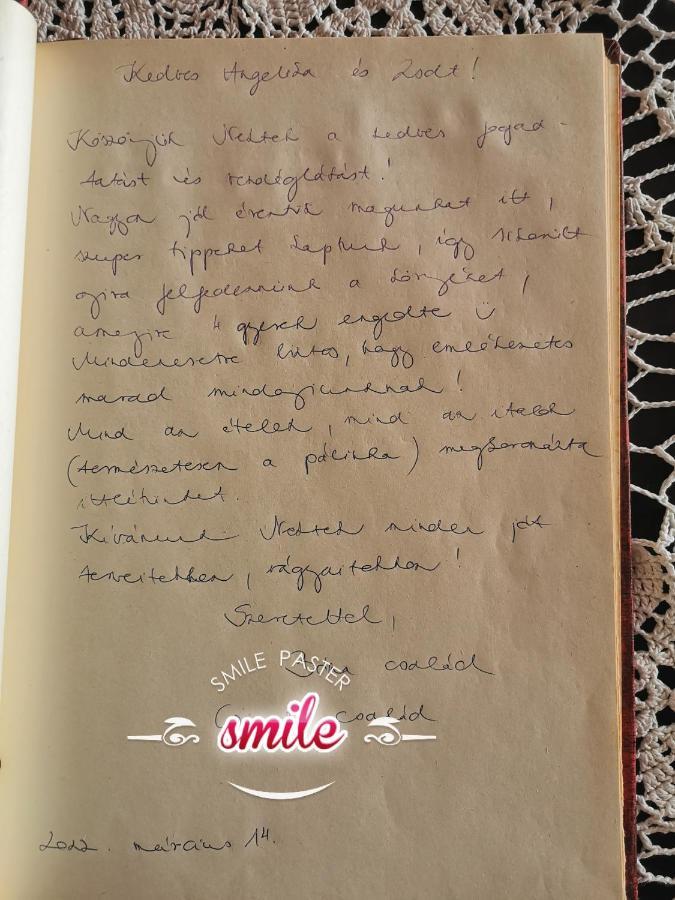 Kedves Angelika és Zsolt!
Köszönjük Nektek a kedves fogad-
tatást és vendéglátást!
Nagyon jól éreztük magunkat itt,
szuper tippeket kaptunk, így sikerült
újra felfedeznünk a környéket,
amennyire 4 gyerek engedte ü
Mindenesetre biztos, hogy emlékezetes
marad mindannyiunknak!
Mind az ételek, mind az italok
(természetesen a pálinka) megkoronázta
ittlétünket.
Kívánunk Nektek minden jót
terveitekhez, vágyaitokhoz!
Szeretettel,
család
család
SMILE PASTER
smile
2022. március 14.